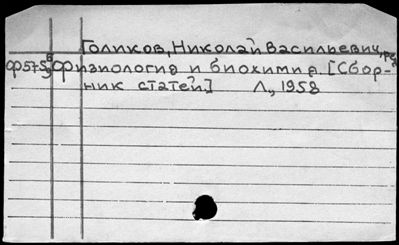 Голиков, Николай Васильевич, ред
Ф575 Физиология и биохимия. [Сбор-
ник статей.] Л., 1958